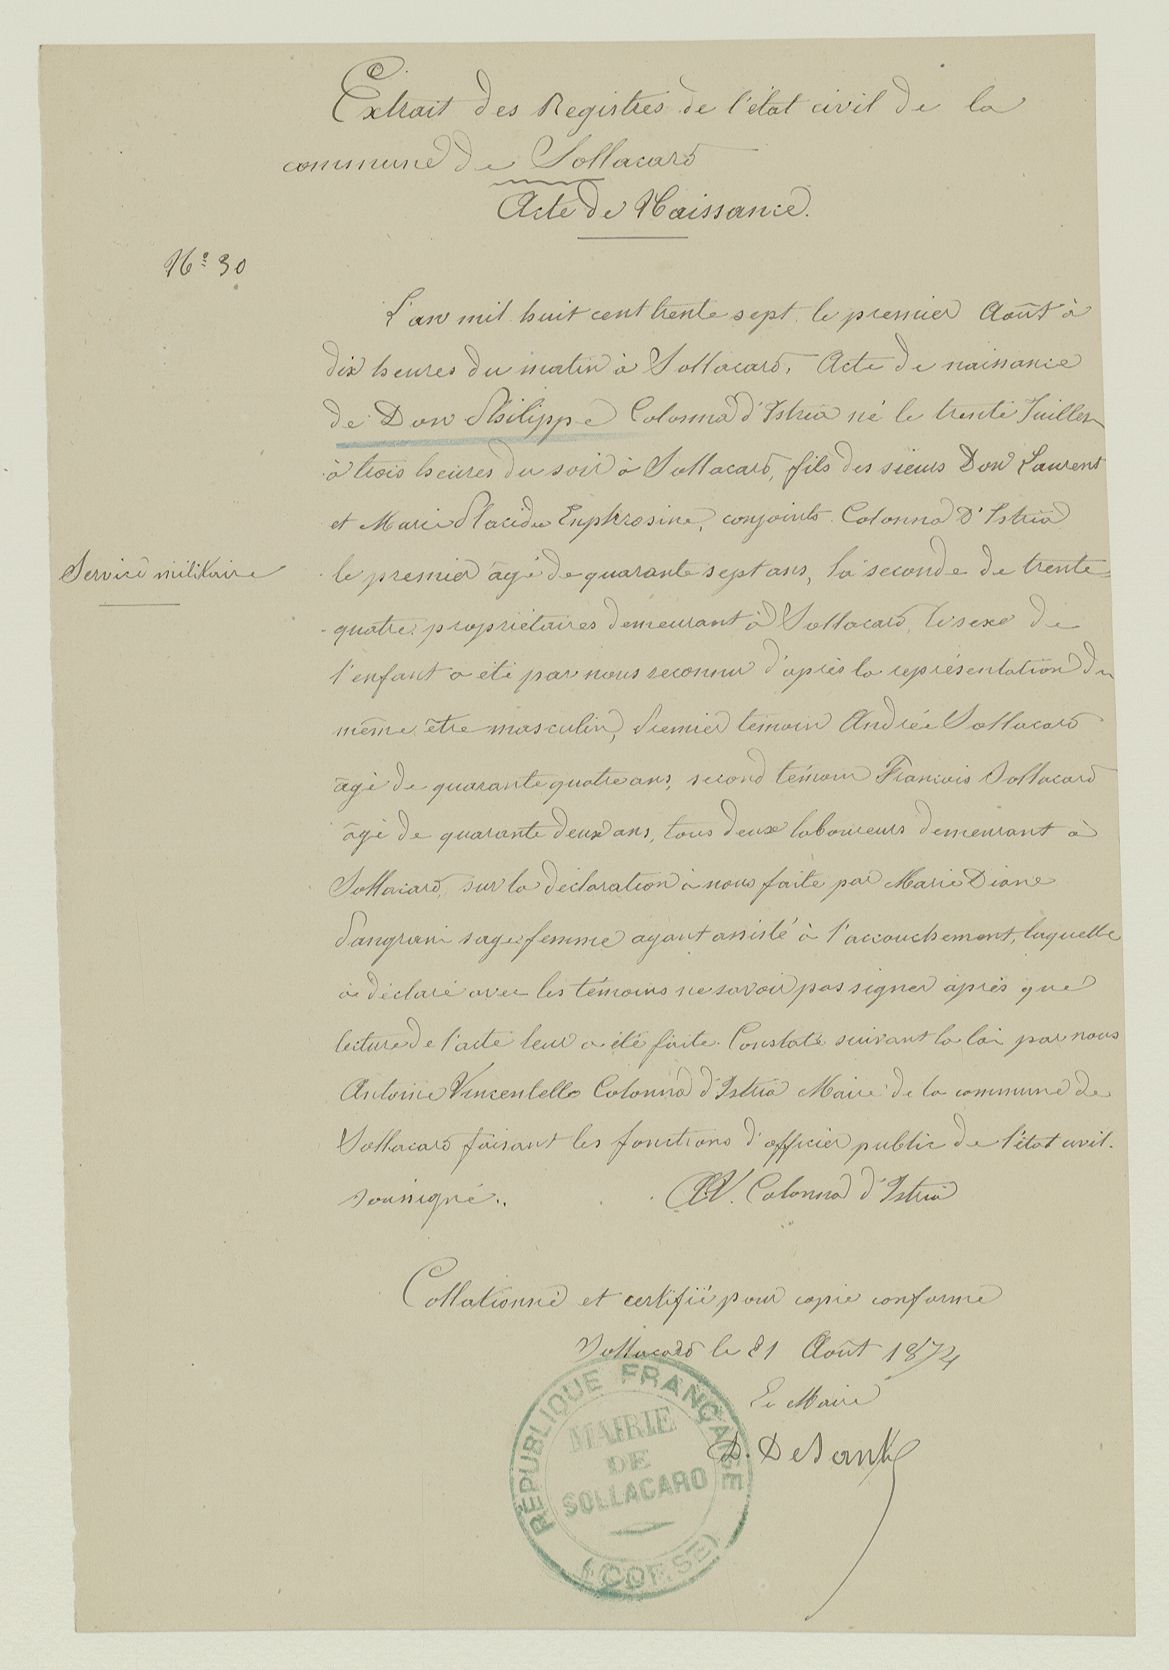 Extrait des Registres de l'état civil de la
commune de Sollacaro
Acte de Naissance.
N.° 30
L'an mil huit cent trente sept le premier Août à
dix heures du matin à Sollacaro, Acte de naissance
de Don Philippe Colonna d'Istria né le trente Juillet
à trois heures du soir à Sollacaro, fils des sieurs Don Laurent
et Marie Placide Euphrosine, conjoints Colonna D'Istria
Service militaire
le premier âgé de quarante sept ans, la seconde de trente
quatre, propriétaires demeurant à Sollacaro, le sexe de
l'enfant a été par nous reconnu d'après la représentation du
même être masculin, Premier témoin André Sollacaro
âgé de quarante quatre ans, second témoin François Sollacaro
âgé de quarante deux ans, tous deux laboureurs demeurant à
Sollacaro, sur la déclaration à nous faite par Marie Diane
sage femme ayant assisté à l'accouchement, laquelle
a déclaré avec les témoins ne savoir pas signer après que
lecture de l'acte leur a été faite. Constaté suivant la loi par nous
Antoine Vincentello Colonna d'Istria Maire de la commune de
Sollacaro faisant les fonctions d'officier public de l'état civil.
soussigné.
AV. Colonna d'Istria
Collationné et certifié pour copie conforme
Sollacaro le 21 Août 1874
Le Maire
RÉPUBLIQUE FRANÇAISE
MAIRIE
DE
SOLLACARO
(CORSE)